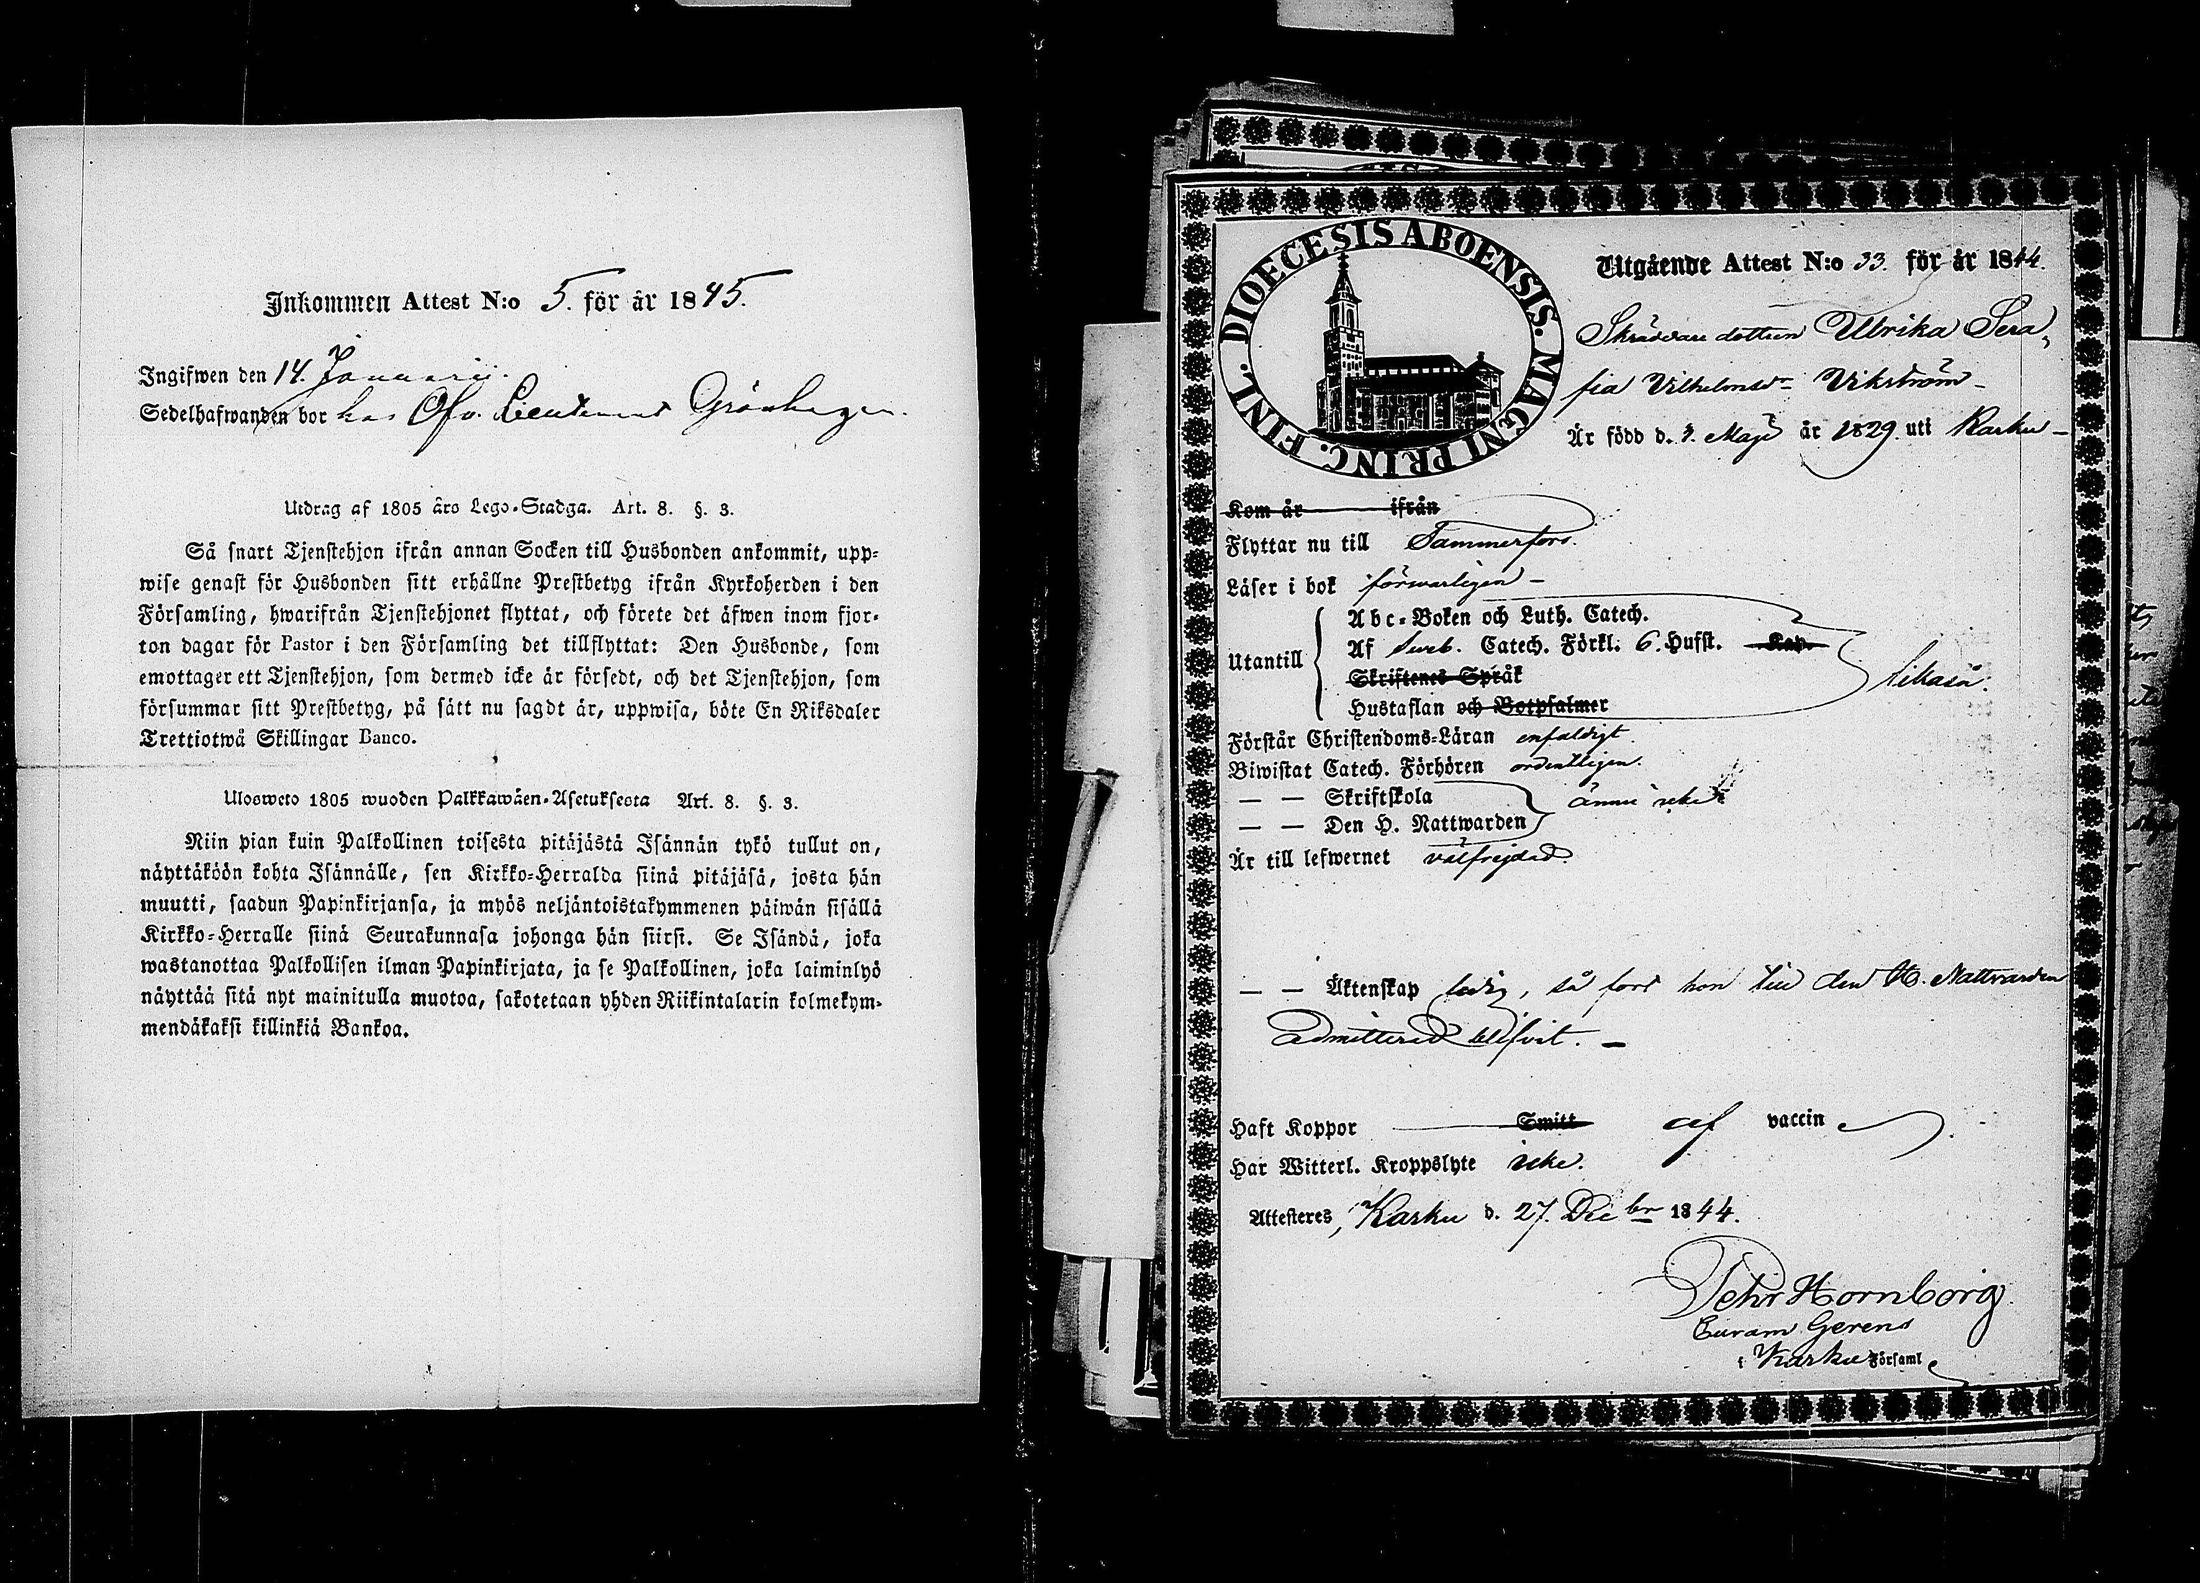 Inkommen Attest N:o 5. för år 1845.
Ingifwen den 14. Januarii.
Sedelhafwanden bor hos Öfv. Lieutenant Grönhagen.
Utdrag af 1805 års Lego-Stadga. Art. 8. §. 3.
Så snart Tjenstehjon ifrån annan Socken till Husbonden ankommit, upp-
wise genast för Husbonden sitt erhållne Prestbetyg ifrån Kyrkoherden i den
Församling, hwarifrån Tjenstehjonet flyttat, och förete det äfwen inom fjor-
ton dagar för Pastor i den Församling det tillflyttat: Den Husbonde, som
emottager ett Tjenstehjon, som dermed icke är försedt, och det Tjenstehjon, som
försummar sitt Prestbetyg, på sätt nu sagdt är, uppwisa, böte En Riksdaler
Trettiotwå Skillingar Banco.
Uloswetо 1805 wuoden Palkkawäen-Asetuksesta Art. 8. §. 3.
Niin pian kuin Palkollinen toisesta pitäjästä Isännän tykö tullut on,
näyttäköön kohta Isännälle, sen Kirkko-Herralda siinä pitäjäsä, josta hän
muutti, saadun Papinkirjansa, ja myös neljäntoistakymmenen päiwän sisällä
Kirkko-Herralle siinä Seurakunnasa johonga hän siirsi. Se Isändä, joka
wastanottaa Palkollisen ilman Papinkirjata, ja se Palkollinen, joka laiminlyö
näyttää sitä nyt mainitulla muotoa, sakotetaan yhden Riikintalarin kolmekym-
mendäkaksi killinkiä Bankoa.
DIOECESIS ABOENSIS. MAGNI PRINC. FINL.
Utgående Attest N:o 33. för år 1844.
Skräddare dottren Ulrika Sera,
fia Vilhelmsdr Vikström
Är född d. Maji år 1829. uti Karku
Kom år ifrån
Flyttar nu till Tammerfors.
Läser i bok försvarligen
Utantill
Abc-Boken och Luth. Catech.
Af Sveb. Catech. Förkl. 6. Hufst. Kap.
Skriftenes Språk
Hustaflan och Botpsalmer
likaså.
Förstår Christendoms-Läran enfaldigt.
Biwistat Catech. Förhören ordentligen.
— — Skriftskola
— — Den H. Nattwarden
ännu icke
Är till lefwernet välfrejdad
— — Äktenskap ledig, så fort hon till den H. Nattvarden
admitterad blifvit.
Haft Koppor Smitt af vaccin
Har Witterl. Kroppslyte icke.
Attesteres, Karku d. 27. Decbr 1844.
Pehr Hornborg.
Curam Gerens
i Karku Församl